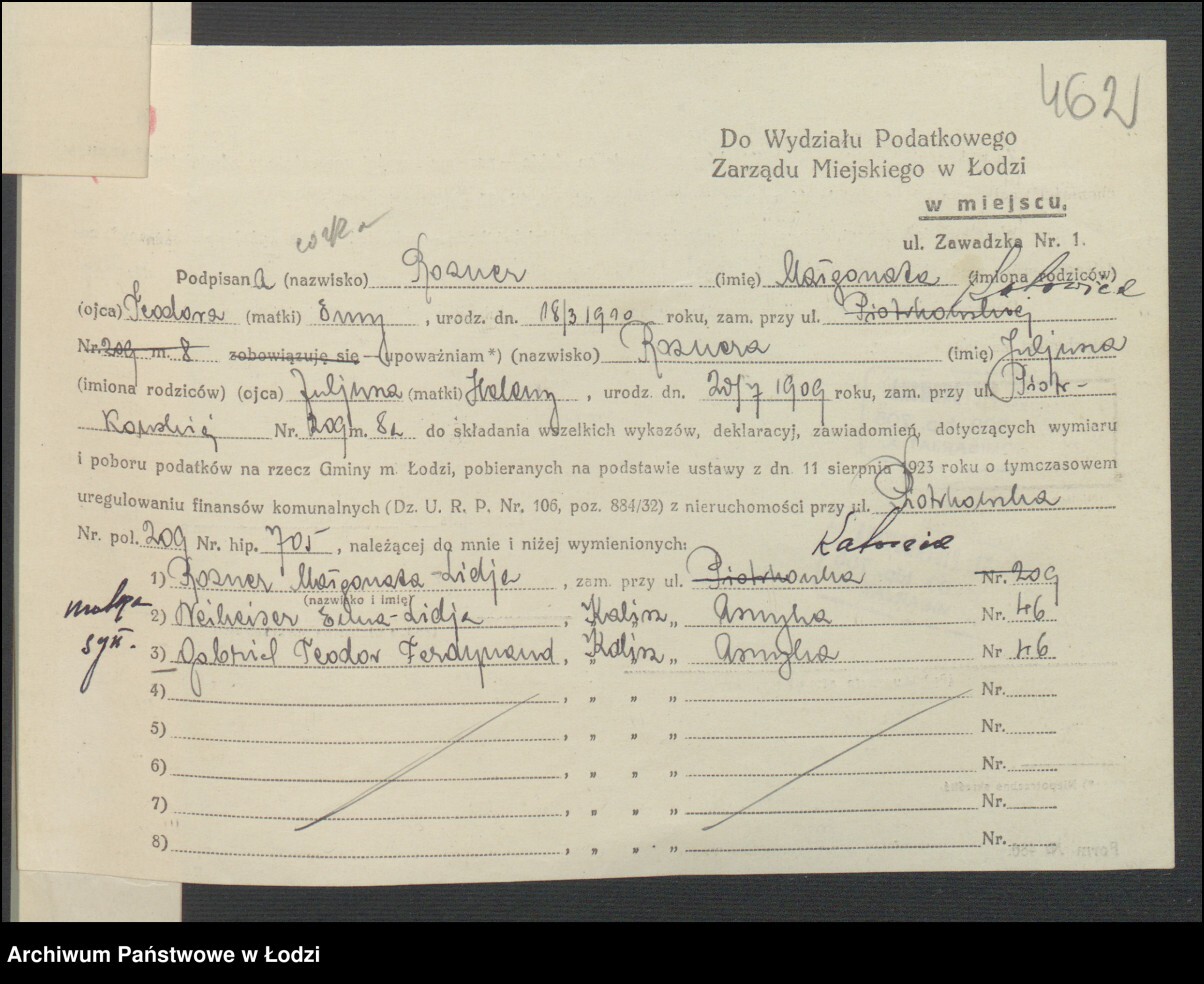 462
Do Wydziału Podatkowego
Zarządu Miejskiego w Łodzi
w miejscu.
ul. Zawadzka Nr. 1.
córka
Podpisana (nazwisko) Rozner (imię) Małgorzata (imiona rodziców)
Katowice
(ojca) Teodora (matki) Emy, urodz. dn. 18/3 1910 roku, zam. przy ul. Piotrkowskiej
Nr. 209 m. 8 zobowiązuję się — (upoważniam*) (nazwisko) Roznera (imię) Juljusza
(imiona rodziców) (ojca) Juljusza (matki) Heleny, urodz. dn. 1909 roku, zam. przy ul. Piotr-
kowskiej Nr. 209 m. 8a do składania wszelkich wykazów, deklaracyj, zawiadomień, dotyczących wymiaru
i poboru podatków na rzecz Gminy m. Łodzi, pobieranych na podstawie ustawy z dn. 11 sierpnia 1923 roku o tymczasowem
uregulowaniu finansów komunalnych (Dz. U. R. P. Nr. 106, poz. 884/32) z nieruchomości przy ul. Piotrkowska
Nr. pol. 209 Nr. hip. 705, należącej do mnie i niżej wymienionych:
Katowice
1) Rozner Małgorzata-Lidja, zam. przy ul. Piotrkowska Nr. 209
(nazwisko i imię)
2) Neiheiser Edna-Lidja, Kalisz „ Asnyka Nr. 46
syn.
3) Gabriel Teodor Ferdynand, Kalisz „ Asnyka Nr 46
4) , „ „ „ Nr.
5) , „ „ „ Nr.
6) , „ „ „ Nr.
7) , „ „ „ Nr.
8) , „ „ „ Nr.
Archiwum Państwowe w Łodzi